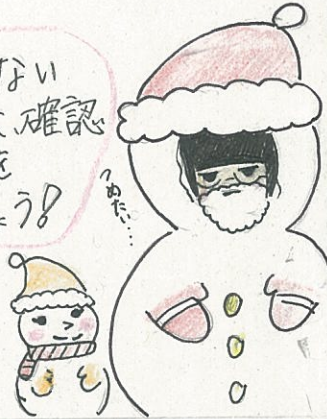 ない
確認
を
う!
つめたい…